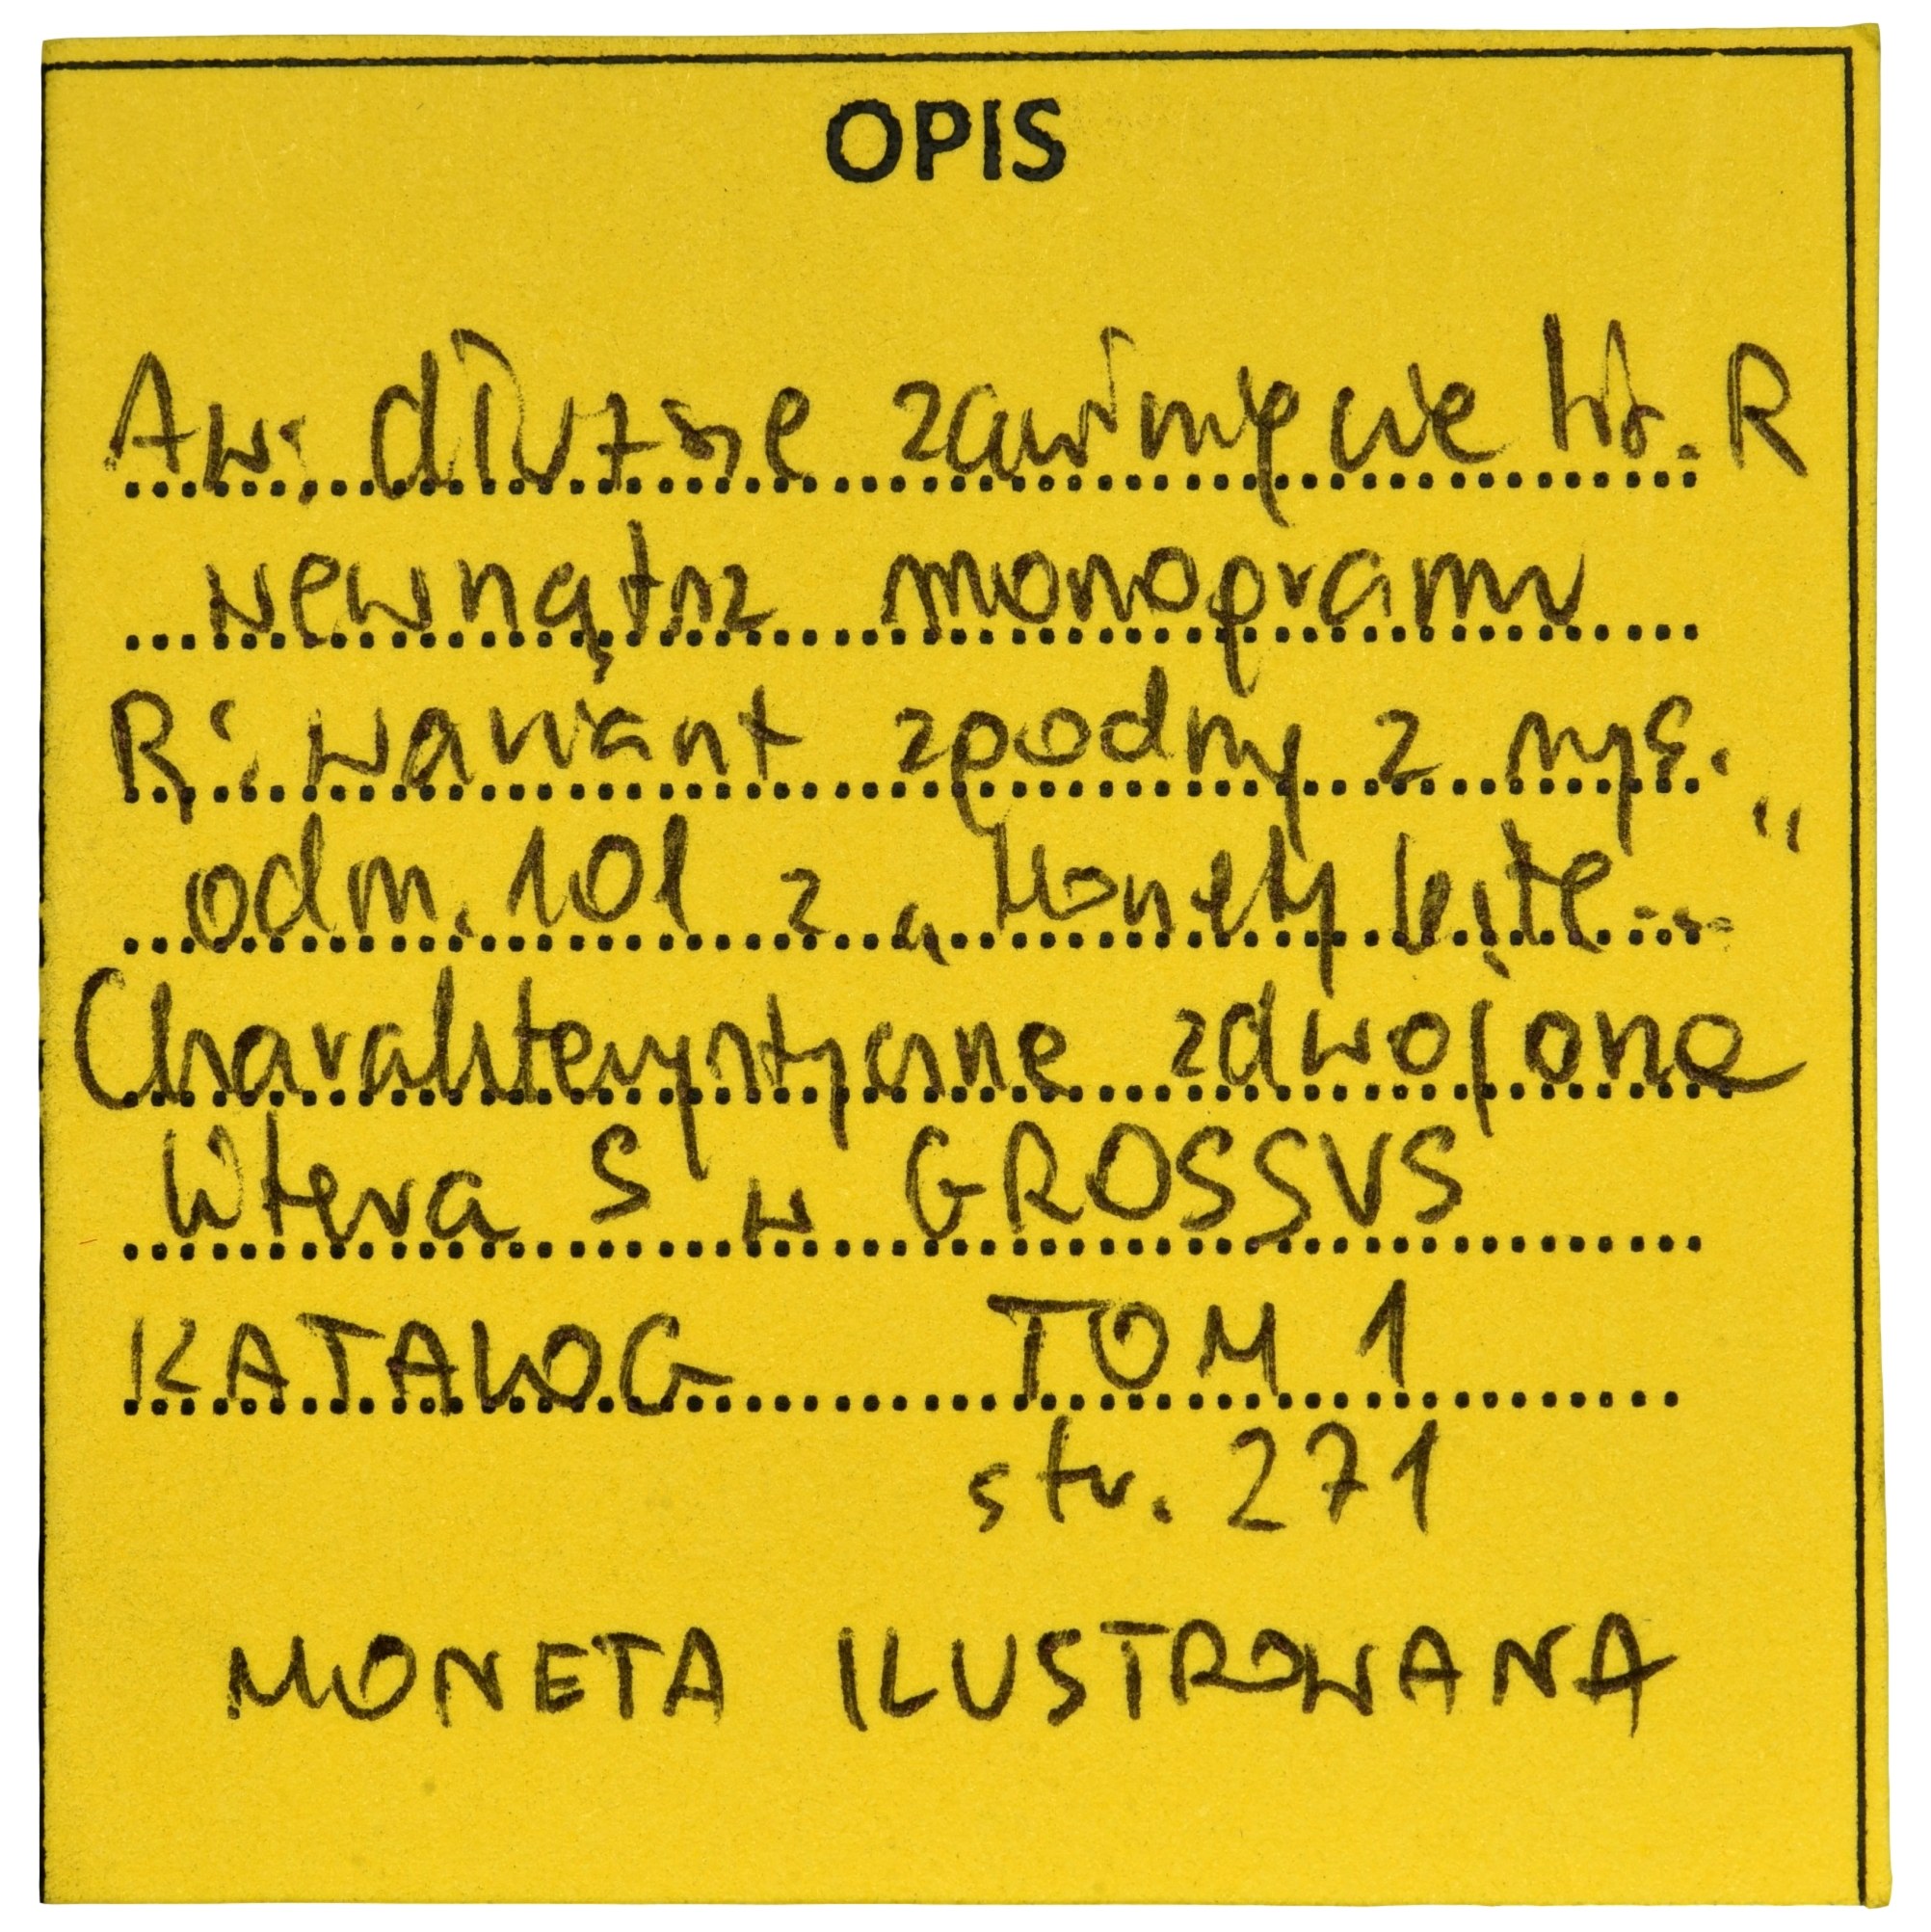 OPIS
Aw: dłuższe zawinięcie lit. R
wewnątrz monogramu
R: wariant zgodny z rys.
odm. 101 z „Monety bite..."
Charakterystyczne zdwojone
litera S w GROSSVS
KATALOG TOM 1
str. 271
MONETA ILUSTROWANA